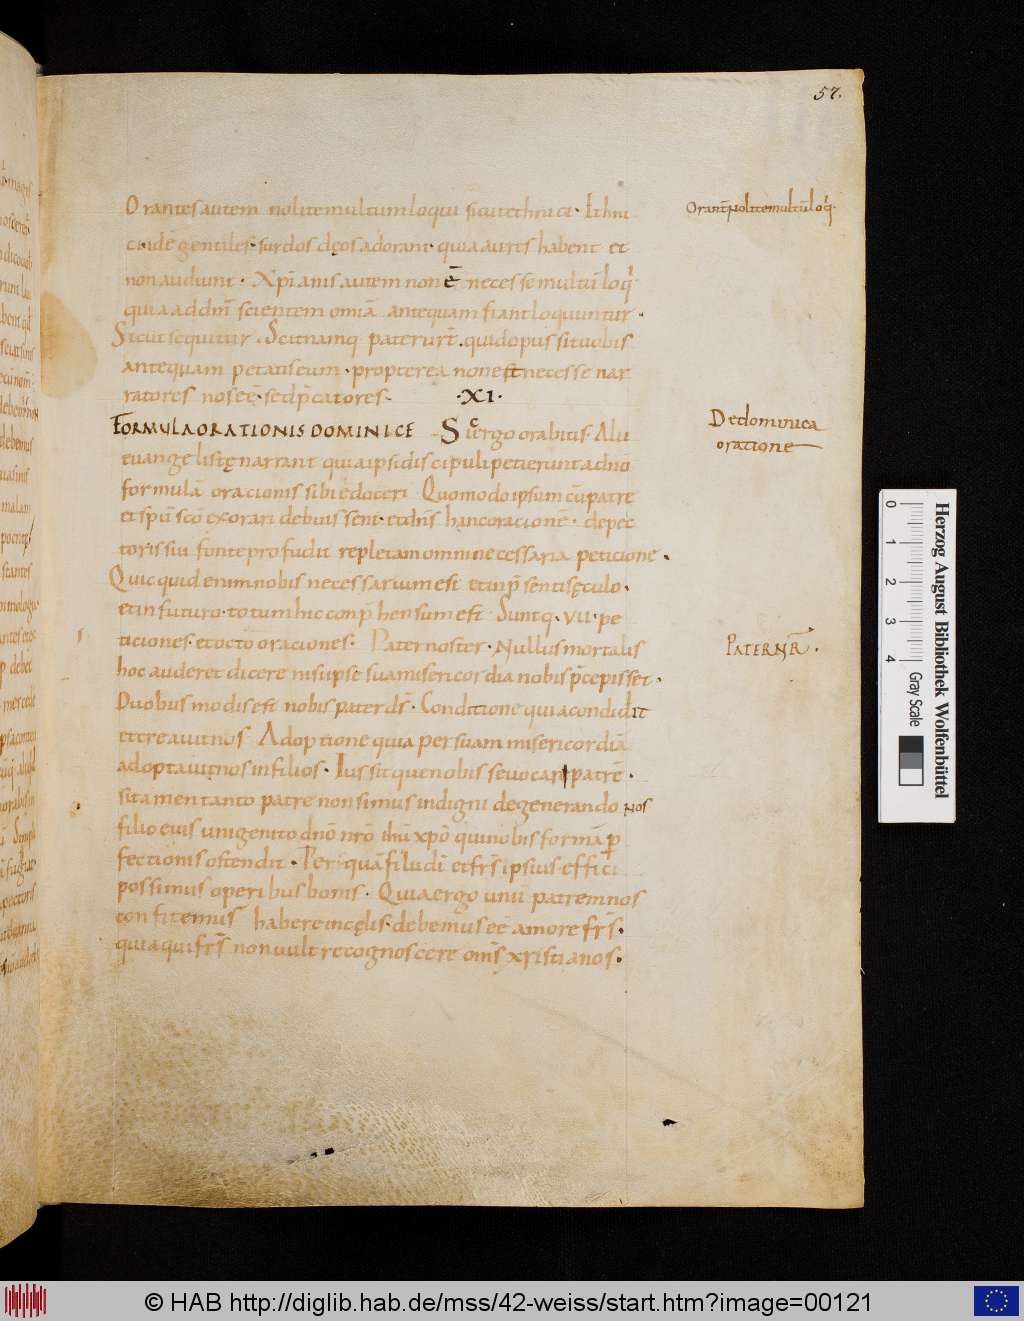 57.
Orantes autem nolite multum loqui sicut ethnici· Ethni
ci· idē gentiles· surdos dęos adorant· quia aures habent et
non audiunt· Xp̄ianis autem non ē necesse multū loq̇
quia ad dn̄m scientem omīa antequam fiant loquuntur·
Sicut sequitur. Scit namq pater ur̄t· quid opus sit uobis
antequam petatis eum· propterea non est necesse nar
ratores nos eē· sed p̄catores· ·XI·
FORMULA ORATIONIS DOMINICE Sic ergo orabitis· Alii
euangelistę narrant quia ipsi discipuli petierunt a dn̄o
formulā oracionis sibi edoceri Quomodo ipsum cū patre
et sp̄u sc̄o exorari debuissent· et dn̄s hanc oracionē· de pec
toris sui fonte profudit repletam omni necessaria peticione·
Quicquid enim nobis necessarium est et in p̄senti sęculo·
et in futuro· totum hic conp̄hensum est Suntq· VII· pe
ticiones· et octo oraciones· Pater noster· Nullus mortalis
hoc auderet dicere nisi ipse sua misericordia nobis p̄cepisset·
Duobus modis est nobis pater dś· Conditione quia condidit
et creauit nos Adoptione quia per suam misericordiā
adoptauit nos in filios· Iussitque nobis se uocari patrē·
si tamen tanto patre non simus indigni degenerando nos
filio eius unigenito dn̄o nr̄o ih̄u xp̄o qui nobis formā p
fectionis ostendit· Per quā filii dī et fr̄s ipsius effici
possimus operibus bonis· Quia ergo unū patrem nos
confitemus habere in cęlis· debemus eē amore fr̄s·
quia qui fr̄s non uult recognoscere om̄s xristianos·
Orant̄ nolite multū loq̇·
De dominica
oratione
PATER NR̄·
0 1 2 3 4
Herzog August Bibliothek Wolfenbüttel
Gray Scale
© HAB http://diglib.hab.de/mss/42-weiss/start.htm?image=00121